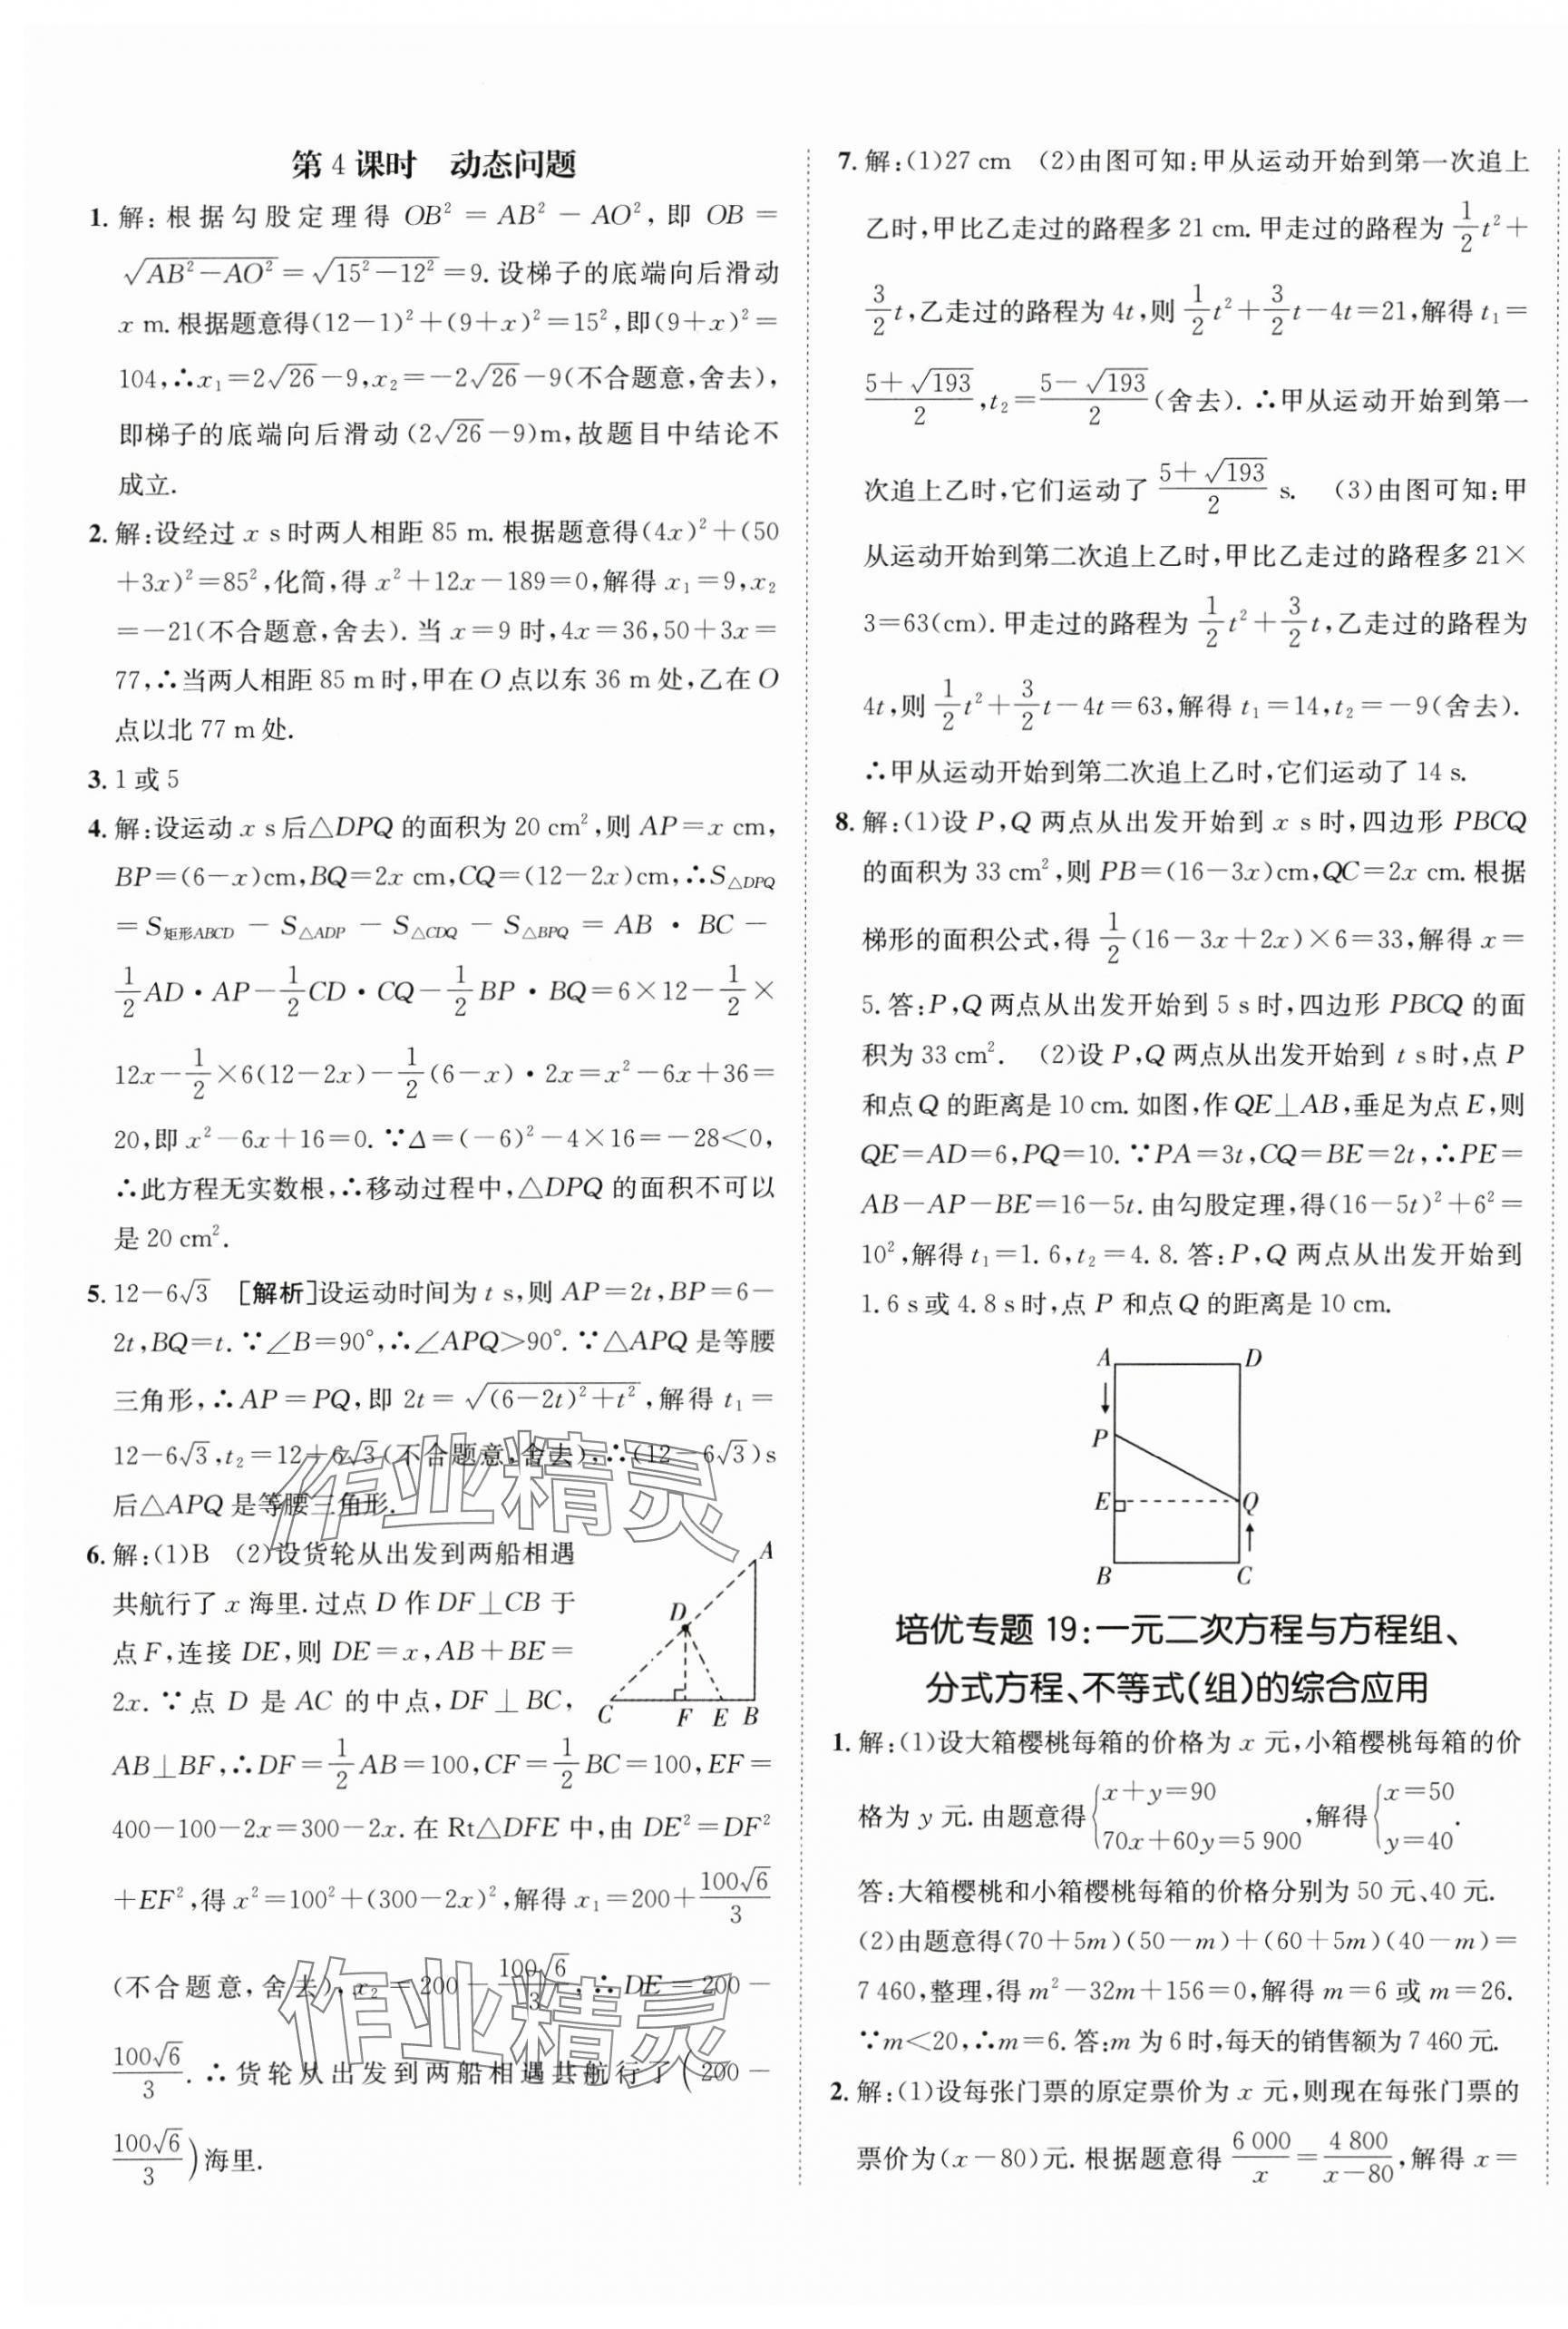 第4课时　动态问题
1. 解:根据勾股定理得 OB²=AB²-AO²,即 OB=
√(AB²-AO²)=√(15²-12²)=9. 设梯子的底端向后滑动
x m. 根据题意得(12-1)²+(9+x)²=15²,即(9+x)²=
104,∴x₁=2√26-9,x₂=-2√26-9(不合题意,舍去),
即梯子的底端向后滑动(2√26-9)m,故题目中结论不
成立.
2. 解:设经过 x s时两人相距 85 m. 根据题意得(4x)²+(50
+3x)²=85²,化简,得 x²+12x-189=0,解得 x₁=9,x₂
=-21(不合题意,舍去). 当 x=9 时,4x=36,50+3x=
77,∴当两人相距 85 m时,甲在O点以东 36 m处,乙在O
点以北 77 m处.
3. 1 或 5
4. 解:设运动 x s后△DPQ 的面积为 20 cm²,则 AP=x cm,
BP=(6-x)cm,BQ=2x cm,CQ=(12-2x)cm,∴S△DPQ
=S矩形ABCD-S△ADP-S△CDQ-S△BPQ=AB·BC-
1/2 AD·AP-1/2 CD·CQ-1/2 BP·BQ=6×12-1/2×
12x-1/2×6(12-2x)-1/2(6-x)·2x=x²-6x+36=
20,即 x²-6x+16=0. ∵Δ=(-6)²-4×16=-28<0,
∴此方程无实数根,∴移动过程中,△DPQ 的面积不可以
是 20 cm².
5. 12-6√3　[解析]设运动时间为 t s,则 AP=2t,BP=6-
2t,BQ=t. ∵∠B=90°,∴∠APQ>90°. ∵△APQ 是等腰
三角形,∴AP=PQ,即 2t=√((6-2t)²+t²),解得 t₁=
12-6√3,t₂=12+6√3(不合题意,舍去),∴(12-6√3)s
后△APQ 是等腰三角形.
6. 解:(1)B　(2)设货轮从出发到两船相遇
共航行了 x 海里. 过点 D 作 DF⊥CB 于
点 F,连接 DE,则 DE=x,AB+BE=
2x. ∵点 D 是 AC 的中点,DF⊥BC,
A
D
C F E B
AB⊥BF,∴DF=1/2 AB=100,CF=1/2 BC=100,EF=
400-100-2x=300-2x. 在 Rt△DFE 中,由 DE²=DF²
+EF²,得 x²=100²+(300-2x)²,解得 x₁=200+100√6/3
(不合题意,舍去),x₂=200-100√6/3,∴DE=200-
100√6/3. ∴货轮从出发到两船相遇共航行了(200-
100√6/3)海里.
作业精灵
作业精灵
7. 解:(1)27 cm　(2)由图可知:甲从运动开始到第一次追上
乙时,甲比乙走过的路程多 21 cm. 甲走过的路程为 1/2 t²+
3/2 t,乙走过的路程为 4t,则 1/2 t²+3/2 t-4t=21,解得 t₁=
(5+√193)/2,t₂=(5-√193)/2(舍去). ∴甲从运动开始到第一
次追上乙时,它们运动了 (5+√193)/2 s.　(3)由图可知:甲
从运动开始到第二次追上乙时,甲比乙走过的路程多 21×
3=63(cm). 甲走过的路程为 1/2 t²+3/2 t,乙走过的路程为
4t,则 1/2 t²+3/2 t-4t=63,解得 t₁=14,t₂=-9(舍去).
∴甲从运动开始到第二次追上乙时,它们运动了 14 s.
8. 解:(1)设 P,Q 两点从出发开始到 x s时,四边形 PBCQ
的面积为 33 cm²,则 PB=(16-3x)cm,QC=2x cm. 根据
梯形的面积公式,得 1/2(16-3x+2x)×6=33,解得 x=
5. 答:P,Q 两点从出发开始到 5 s时,四边形 PBCQ 的面
积为 33 cm².　(2)设 P,Q 两点从出发开始到 t s时,点 P
和点 Q 的距离是 10 cm. 如图,作 QE⊥AB,垂足为点 E,则
QE=AD=6,PQ=10. ∵PA=3t,CQ=BE=2t,∴PE=
AB-AP-BE=16-5t. 由勾股定理,得(16-5t)²+6²=
10²,解得 t₁=1.6,t₂=4.8. 答:P,Q 两点从出发开始到
1.6 s或 4.8 s时,点 P 和点 Q 的距离是 10 cm.
A D
P
E Q
B C
培优专题 19:一元二次方程与方程组、
分式方程、不等式(组)的综合应用
1. 解:(1)设大箱樱桃每箱的价格为 x 元,小箱樱桃每箱的价
格为 y 元. 由题意得{x+y=90 70x+60y=5 900,解得{x=50 y=40.
答:大箱樱桃和小箱樱桃每箱的价格分别为 50 元、40 元.
(2)由题意得(70+5m)(50-m)+(60+5m)(40-m)=
7 460,整理,得 m²-32m+156=0,解得 m=6 或 m=26.
∵m<20,∴m=6. 答:m 为 6 时,每天的销售额为 7 460 元.
2. 解:(1)设每张门票的原定票价为 x 元,则现在每张门票的
票价为(x-80)元. 根据题意得 6 000/x=4 800/(x-80),解得 x=